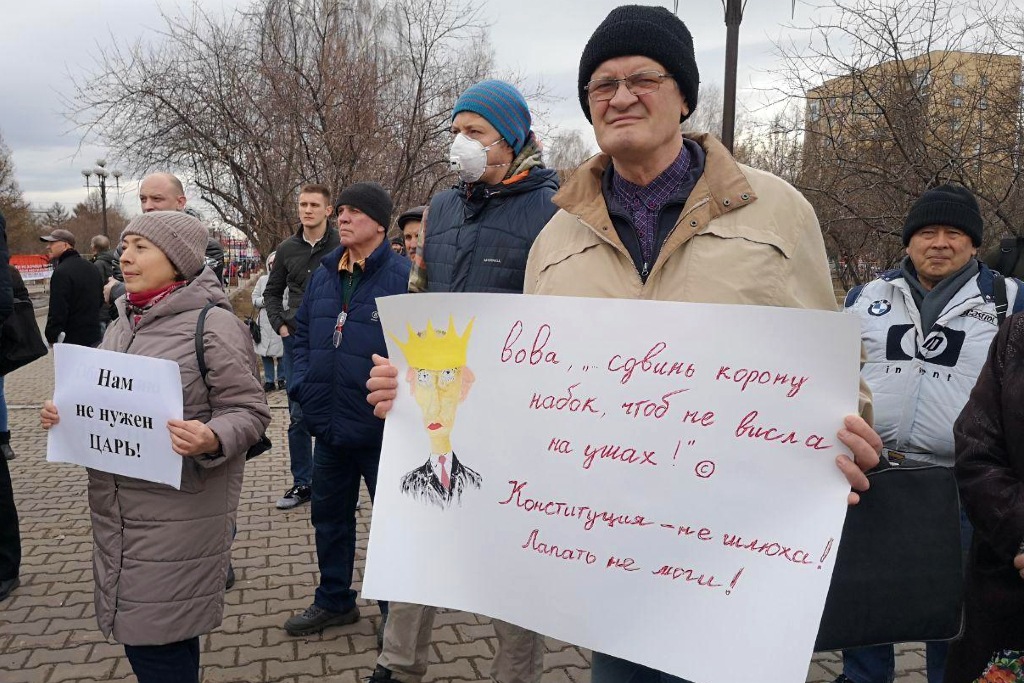 Нам
не нужен
ЦАРЬ!
вова, „ сдвинь корону
набок, чтоб не висла
на ушах!" ©
Конституция – не шлюха!
Лапать не моги!
BMW
Castrol
hp
invent